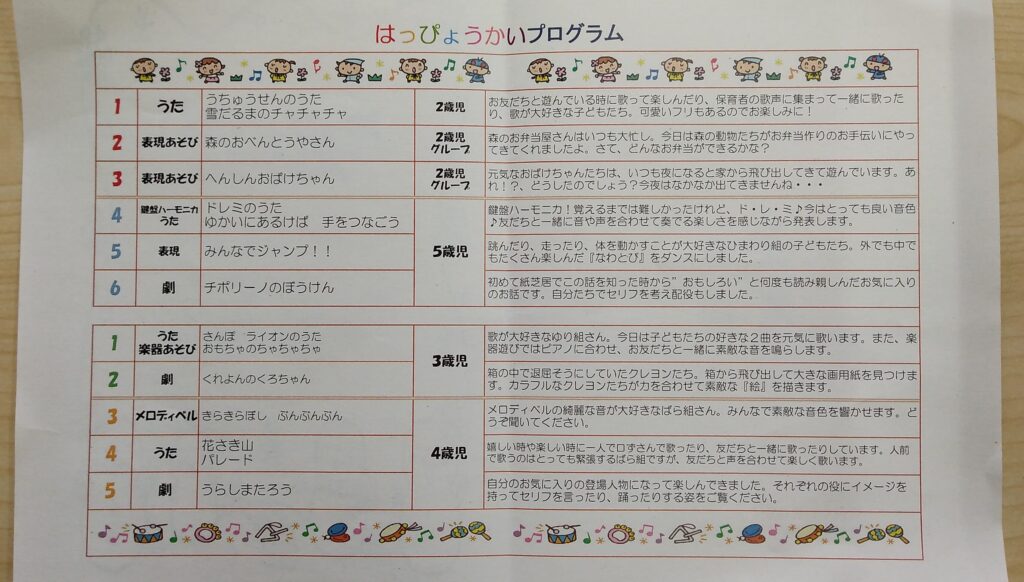 はっぴょうかいプログラム
1 うた うちゅうせんのうた 2歳児 お友だちと遊んでいる時に歌って楽しんだり、保育者の歌声に集まって一緒に歌った
雪だるまのチャチャチャ り、歌が大好きな子どもたち。可愛いフリもあるのでお楽しみに！
2 表現あそび 森のおべんとうやさん 2歳児 森のお弁当屋さんはいつも大忙し。今日は森の動物たちがお弁当作りのお手伝いにやっ
グループ てきてくれましたよ。さて、どんなお弁当ができるかな？
3 表現あそび へんしんおばけちゃん 2歳児 元気なおばけちゃんたちは、いつも夜になると家から飛び出してきて遊んでいます。あ
グループ れ！？、どうしたのでしょう？今夜はなかなか出てきませんね・・・
4 鍵盤ハーモニカ ドレミのうた 5歳児 鍵盤ハーモニカ！覚えるまでは難しかったけれど、ド・レ・ミ♪今はとっても良い音色
うた ゆかいにあるけば 手をつなごう ♪友だちと一緒に音や声を合わせて奏でる楽しさを感じながら発表します。
5 表現 みんなでジャンプ！！ 跳んだり、走ったり、体を動かすことが大好きなひまわり組の子どもたち。外でも中で
もたくさん楽しんだ『なわとび』をダンスにしました。
6 劇 チポリーノのぼうけん 初めて紙芝居でこの話を知った時から”おもしろい”と何度も読み親しんだお気に入り
のお話です。自分たちでセリフを考え配役もしました。
1 うた さんぽ ライオンのうた 3歳児 歌が大好きなゆり組さん。今日は子どもたちの好きな２曲を元気に歌います。また、楽
楽器あそび おもちゃのちゃちゃちゃ 器遊びではピアノに合わせ、お友だちと一緒に素敵な音を鳴らします。
2 劇 くれよんのくろちゃん 箱の中で退屈そうにしていたクレヨンたち。箱から飛び出して大きな画用紙を見つけま
す。カラフルなクレヨンたちが力を合わせて素敵な『絵』を描きます。
3 メロディベル きらきらぼし ぶんぶんぶん 4歳児 メロディベルの綺麗な音が大好きなばら組さん。みんなで素敵な音色を響かせます。ど
うぞ聞いてください。
4 うた 花さき山 嬉しい時や楽しい時に一人で口ずさんで歌ったり、友だちと一緒に歌ったりしています。人前
パレード で歌うのはとっても緊張するばら組ですが、友だちと声を合わせて楽しく歌います。
5 劇 うらしまたろう 自分のお気に入りの登場人物になって楽しんできました。それぞれの役にイメージを
持ってセリフを言ったり、踊ったりする姿をご覧ください。